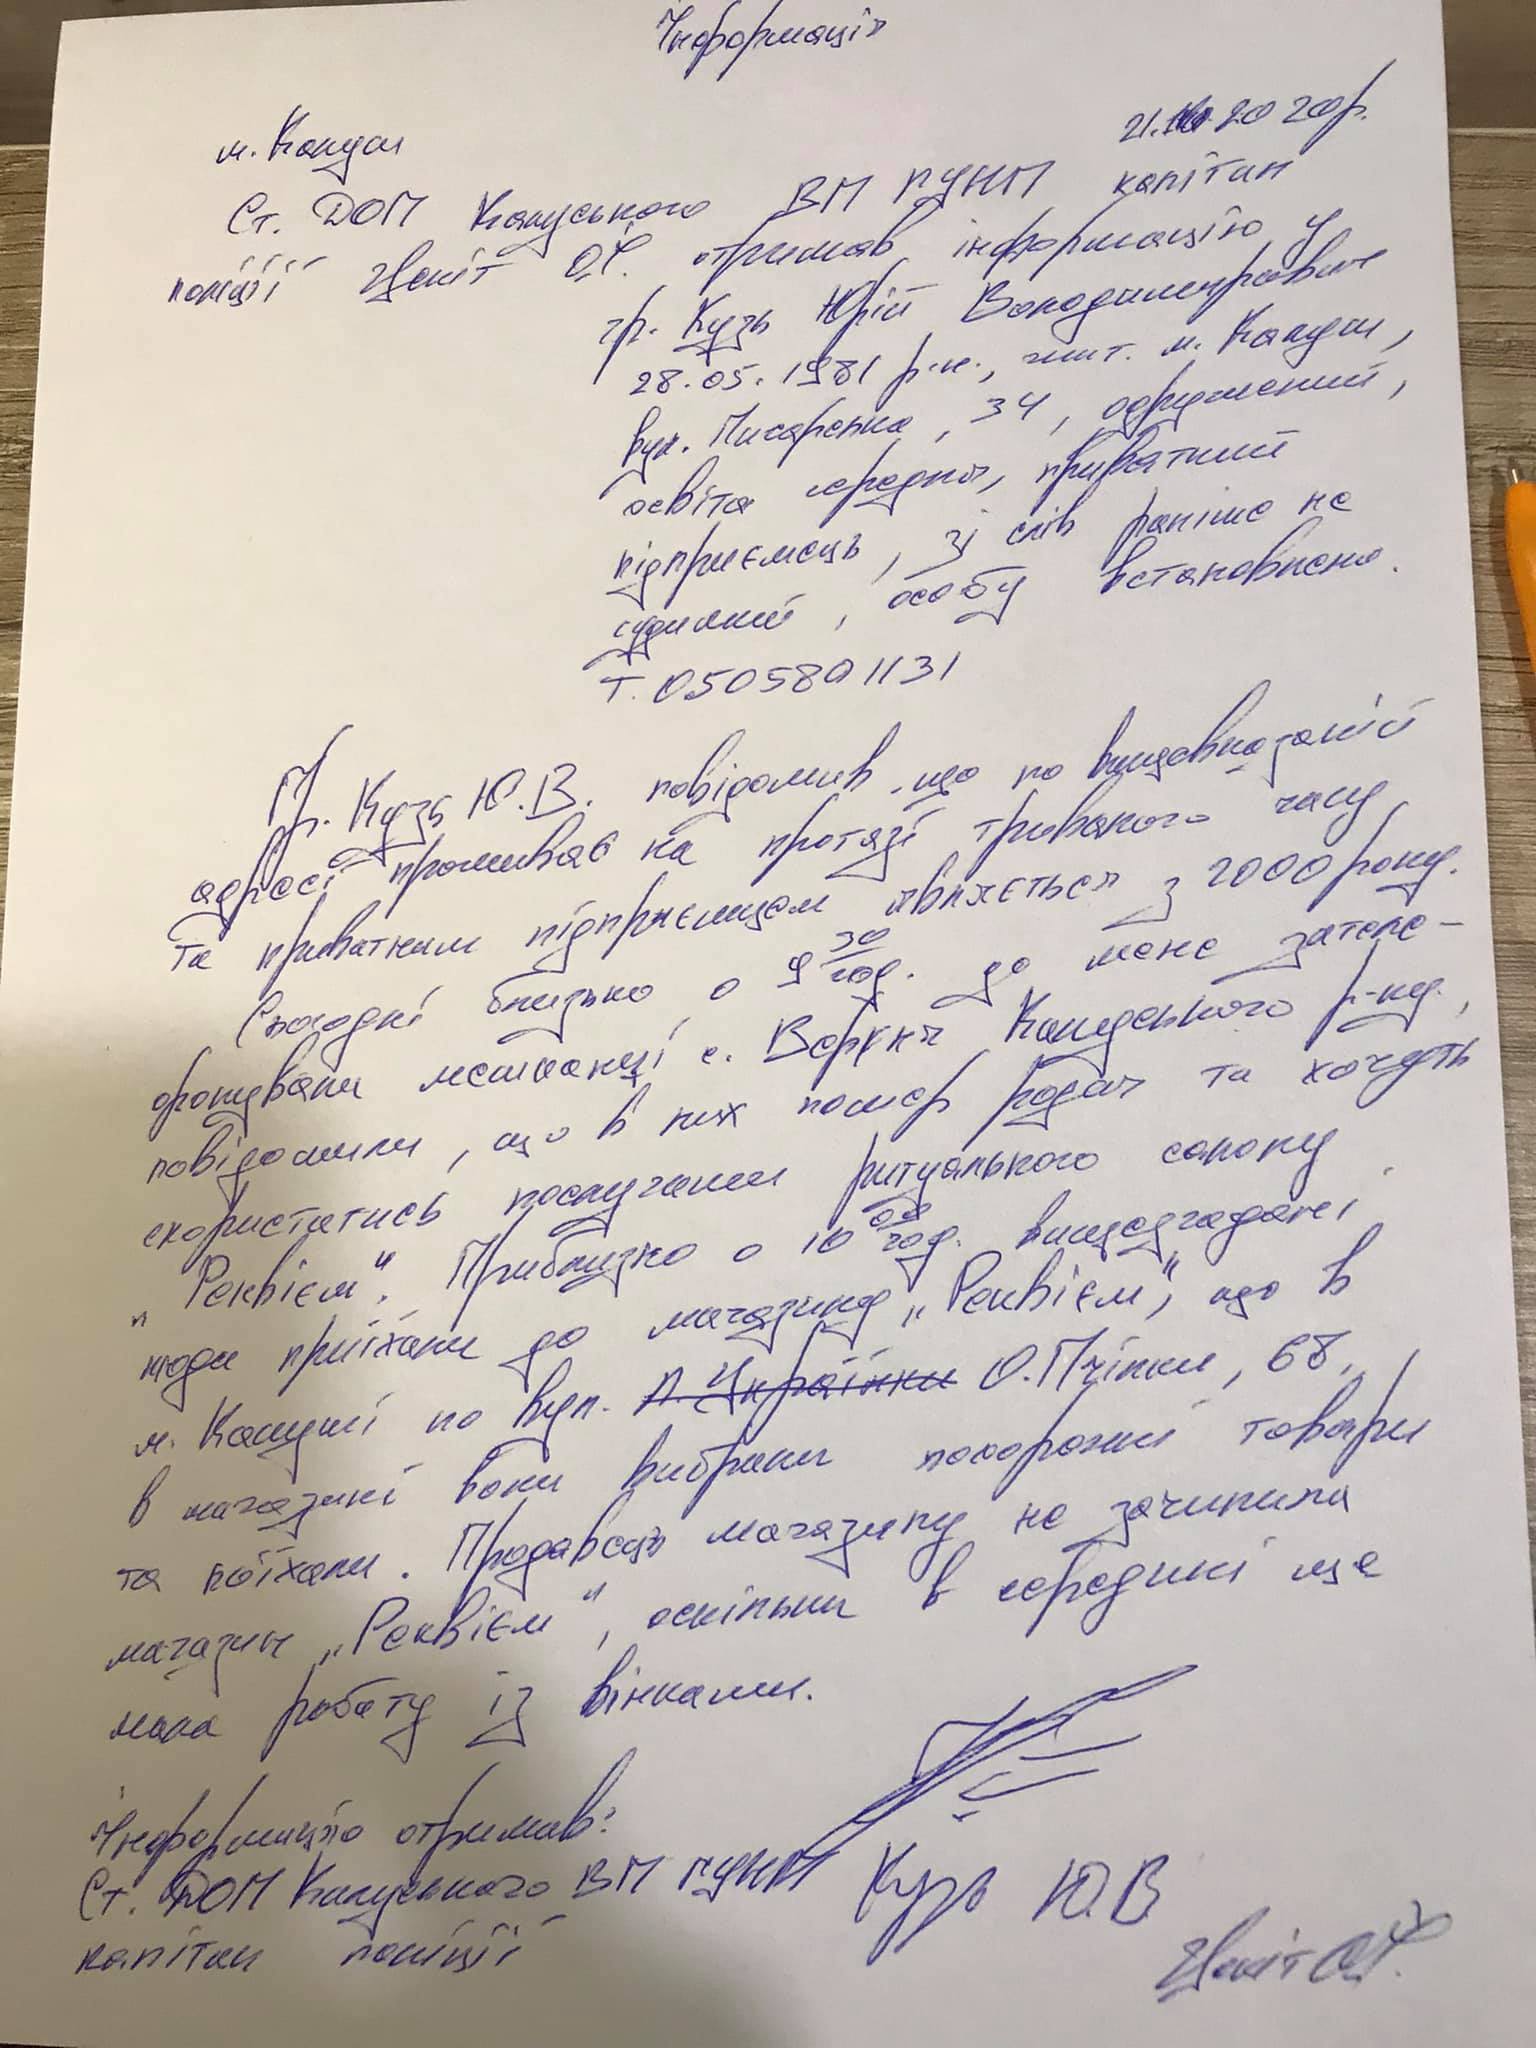 Інформація
м. Калуш
21.10.2020р.
Ст. ДОП Калуського ВП ГУНП капітан
поліції отримав інформацію у
гр. Кузь Юрій Володимирович
28.05.1981 р.н., жит. м. Калуш,
вул. Писарська, 34, одружений,
освіта середня, приватний
підприємець, зі слів раніше не
судимий, особу встановлено.
Т. 0505891131
Гр. Кузь Ю.В. повідомив, що по вищевказаній
адресі проживає на протязі тривалого часу
та приватним підприємцем являється з 2000 року.
Сьогодні близько о 9 30 год. до мене зателе-
фонували мешканці с. Верхня Калуського р-ну,
повідомили, що в них помер родач та хочуть
скористатись послугами ритуального салону
„Реквієм“. Приблизно о 10 00 год. вищезгадані
люди приїхали до магазину „Реквієм“, що в
м. Калуші по вул. Л. Українки О. Пчілки, 68,
в магазині вони вибрали похоронні товари
та поїхали. Продавець магазину не зачинила
магазин „Реквієм“, оскільки в середині ще
мала роботу із вінками.
Інформацію отримав:
Ст. ДОП Калуського ВП ГУНП Кузь Ю.В
капітан поліції